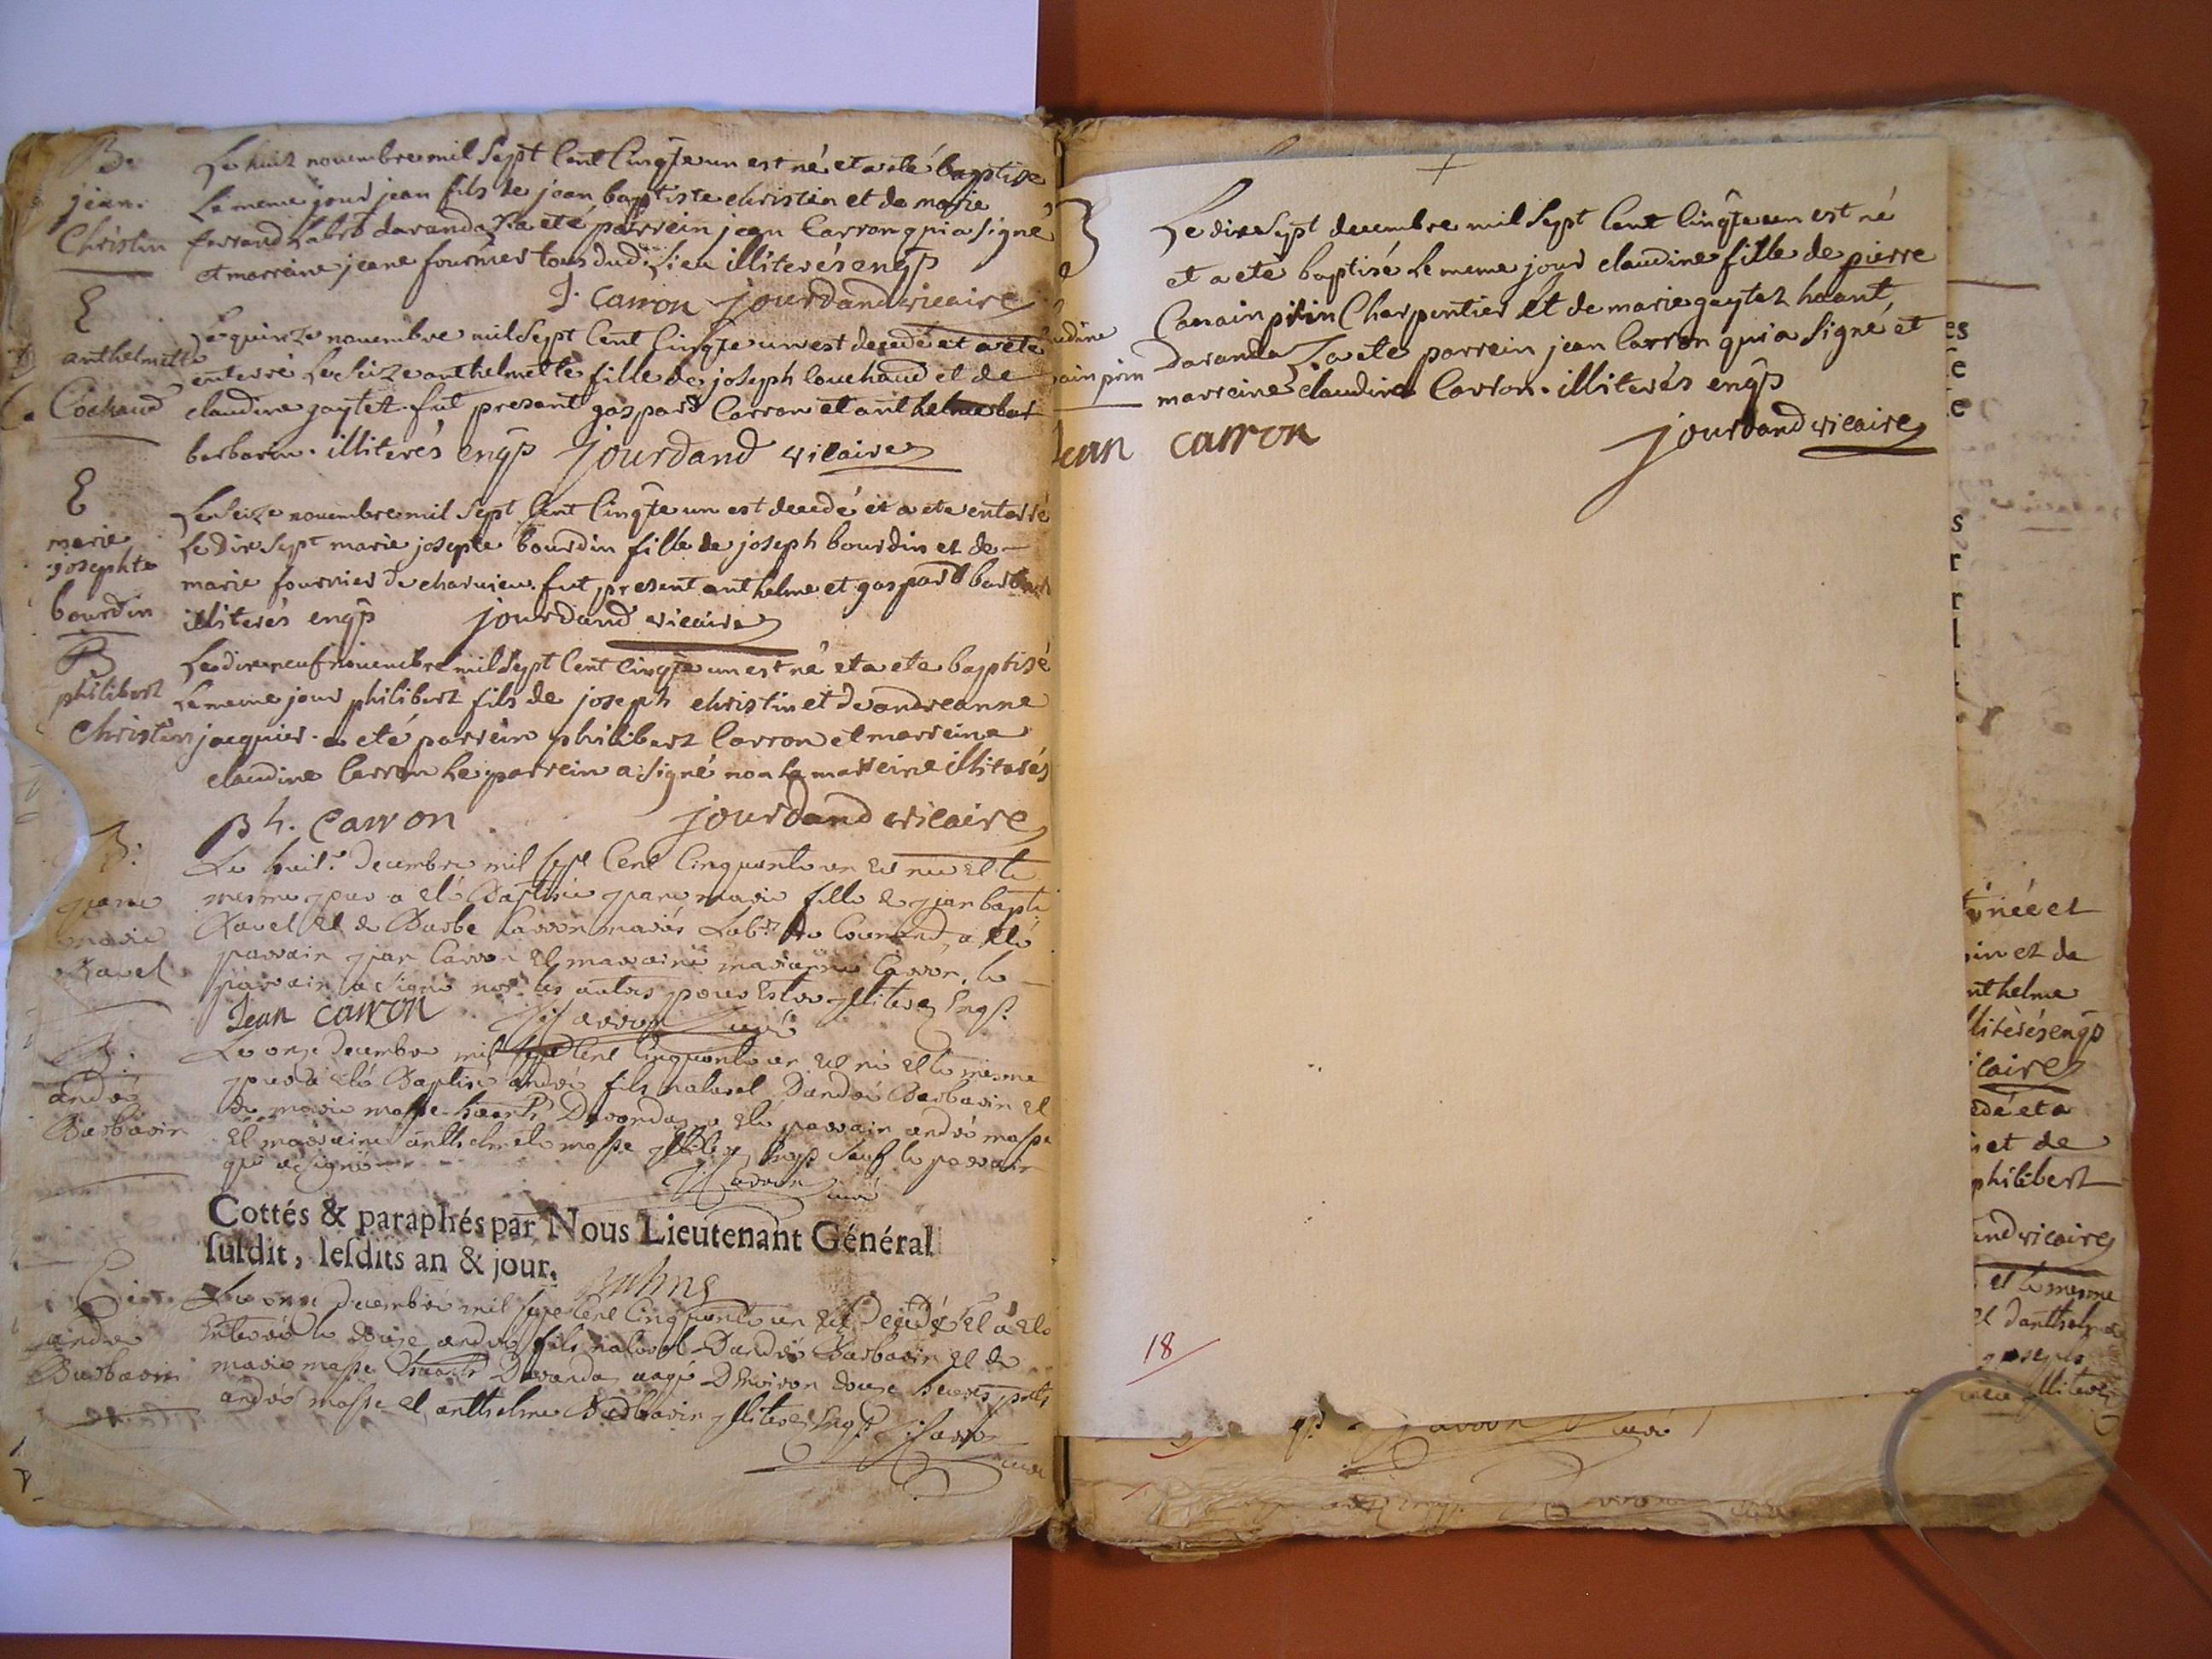 B.
jean
Christin
Le huit novembre mil Sept Cent Cinqte un est né et a eté baptisé
Le meme jour jean fils de jean baptiste christin et de marie
ferrand Labrs daranda. a eté parrein jean Carron qui a signé
et marreine jeane fournier tous dud. Lieu illiterés enqs
J. carron jourdand vicaire
E
anthelmette
Cochaud
Le quinze novembre mil Sept Cent Cinqte un est decedé et a ete
enterré Le Seize anthelmette fille de joseph Couchaud et de
claudine gaytet. fut present gaspard Carron et anthelme bar
barbarin. illiterés enqs jourdand vicaire
E
marie
josephte
bourdin
Le Seize novembre mil Sept Cent Cinqte un est decedé et a ete enterré
Le dix Sept marie josepte bourdin fille de joseph bourdin et de
marie fournier de charvieu. fut present anthelme et gaspard
illiterés enqs jourdand vicaire
B
philibert
Christin
Le dix neuf novembre mil Sept Cent Cinqte un est né et a ete baptisé
Le meme jour philibert fils de joseph christin et de andreanne
jacquier. a eté parrein philibert Carron et marreine
claudine Carron Le parrein a signé non La marreine illiterés
ph. Carron jourdand vicaire
B.
jeane
marie
Ravet
Le huit.e decembre mil sept Cent Cinquante un est née et le
mesme jour a eté Baptisée jeane marie fille de jean bapte
Ravet et de Barbe Carron mariés Labrs de a eté
parrain jean Carron et marraine marianne Carron. le
parrain a signé non les autres pour estre illiteres Enqs
Jean carron Carron curé
B.
andré
Barbarin
Le onze decembre mil sept Cent Cinquante un est né et le mesme
jour a eté Baptisé andré fils naturel Dandré Barbarin et
de marie masse Daranda, a eté parrain andré masse
et marraine anthelmete masse illiteres Enqs sauf le parrain
qui a signé
Carron curé
Cottés & paraphés par Nous Lieutenant Général
susdit, lesdits an & jour.
andre
Barbarin
Le onze decembre mil sept Cent Cinquante un est Decedé et a eté
Enterré le douze andré fils naturel Dandré Barbarin et de
marie masse Daranda, aagé Denviron douze heures, pnts
andré masse et anthelme Barbarin illiteres Enqs Carron
curé
B
Le dix Sept decembre mil Sept Cent Cinqte un est né
et a ete baptisé Le meme jour claudine fille de pierre
Canain pirin Charpentier et de marie gaytet haant,
daranda a ete parrein jean Carron qui a signé et
marreine claudine Carron. illiterés enqs
jean carron jourdand vicaire
18
née et
in et de
nthelme
lliterés enqs
icaire
edé et a
et de
philibert
and vicaire
et le mesme
et danthelme
joseph
illiteres
Carron curé